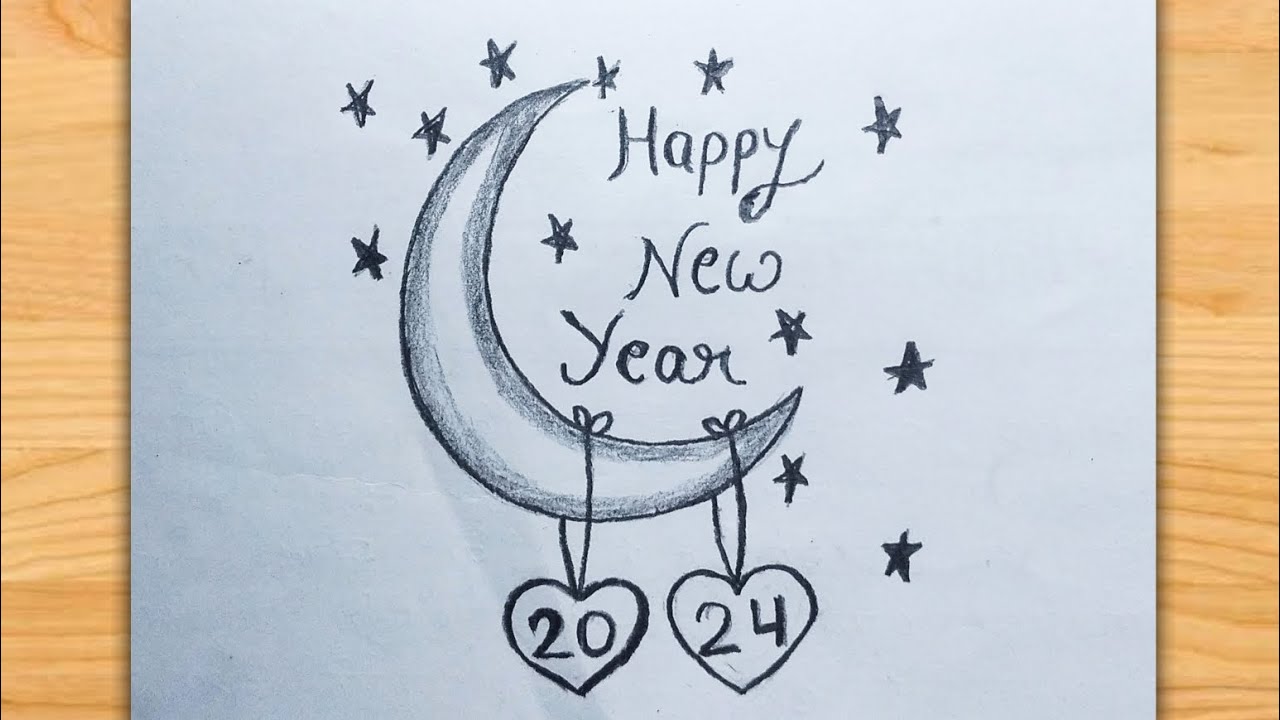 Happy
New
Year
20 24